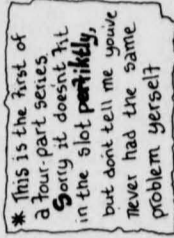 * This is the first of
a four-part series.
Sorry it doesn't fit
in the slot perfiktly,
but dont tell me youve
never had the same
problem yerself